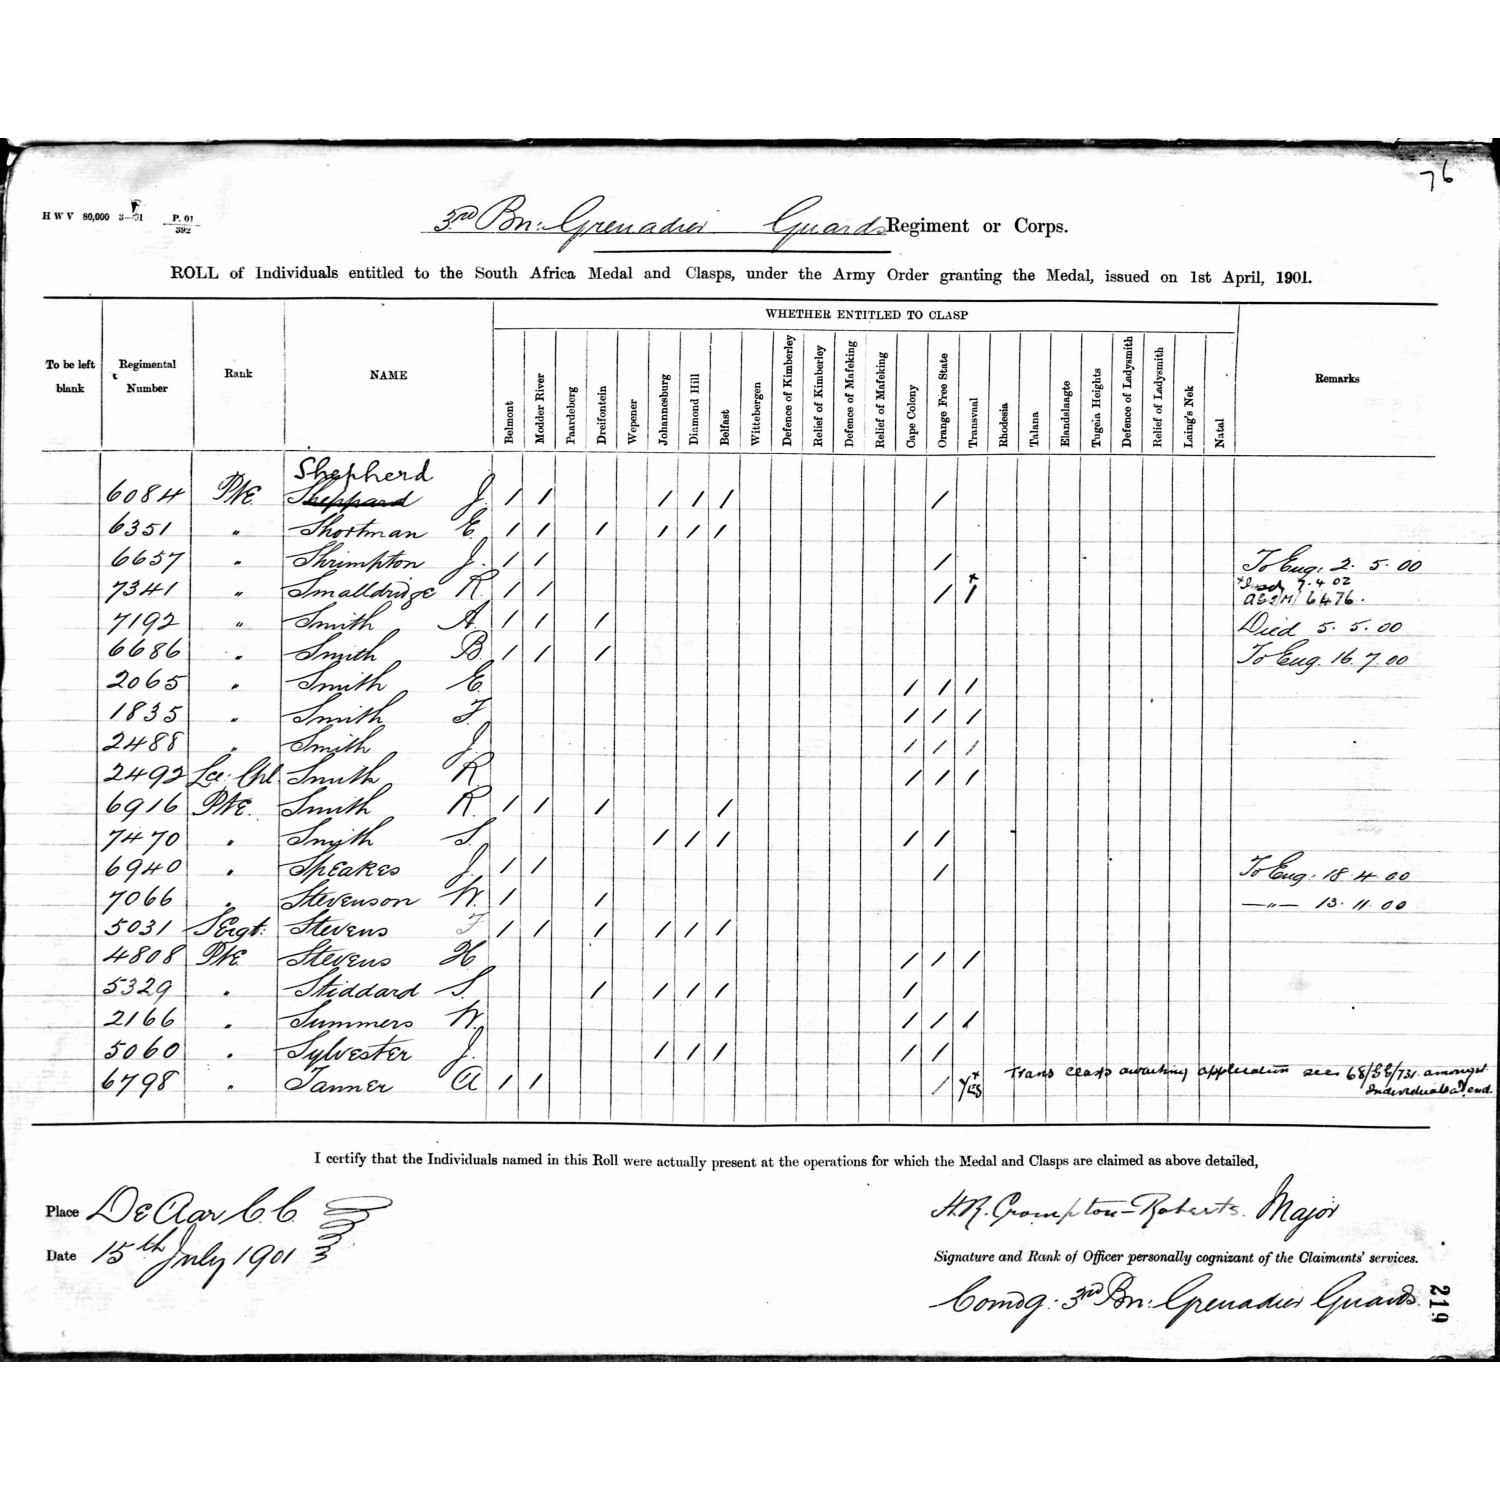 76
H W V 80,000 3—01 P. 01 / 392
3rd Bn: Grenadier Guards Regiment or Corps.
ROLL of Individuals entitled to the South Africa Medal and Clasps, under the Army Order granting the Medal, issued on 1st April, 1901.
WHETHER ENTITLED TO CLASP
To be left blank Regimental Number Rank NAME Belmont Modder River Paardeberg Dreifontein Wepener Johannesburg Diamond Hill Belfast Wittebergen Defence of Kimberley Relief of Kimberley Defence of Mafeking Relief of Mafeking Cape Colony Orange Free State Transvaal Rhodesia Talana Elandslaagte Tugela Heights Defence of Ladysmith Relief of Ladysmith Laing's Nek Natal Remarks
Shepherd
6084 Pte Sheppard J. / / / / / /
6351 " Shortman E. / / / / / /
6657 " Shrimpton J. / / / To Eng. 2. 5. 00
7341 " Smalldridge R. / / / / x 7.4 02
AG2/M/6476.
7192 " Smith A. / / / Died 5. 5. 00
6686 " Smith B / / / To Eng. 16. 7. 00
2065 " Smith E. / / /
1835 " Smith F. / / /
2488 " Smith J. / / /
2492 Lce. Cpl. Smith R / / /
6916 Pte. Smith R. / / / /
7470 " Smith S. / / / / /
6940 " Speakes J. / / / To Eng. 18. 4. 00
7066 " Stevenson W. / / —"— 13. 11. 00
5031 Sergt. Stevens F / / / / / /
4808 Pte Stevens H. / / /
5329 " Stiddard S. / / / / /
2166 " Summers W. / / /
5060 " Sylvester J. / / / / /
6798 " Tanner A / / / x Yes Trans clasp awaiting application see 68/GG/731 amongst
Individuals at end.
I certify that the Individuals named in this Roll were actually present at the operations for which the Medal and Clasps are claimed as above detailed,
Place De Aar, C.C. H.R. Crompton-Roberts. Major
Date 15th July 1901 Signature and Rank of Officer personally cognizant of the Claimants' services.
Comdg. 3rd Bn: Grenadier Guards.
219